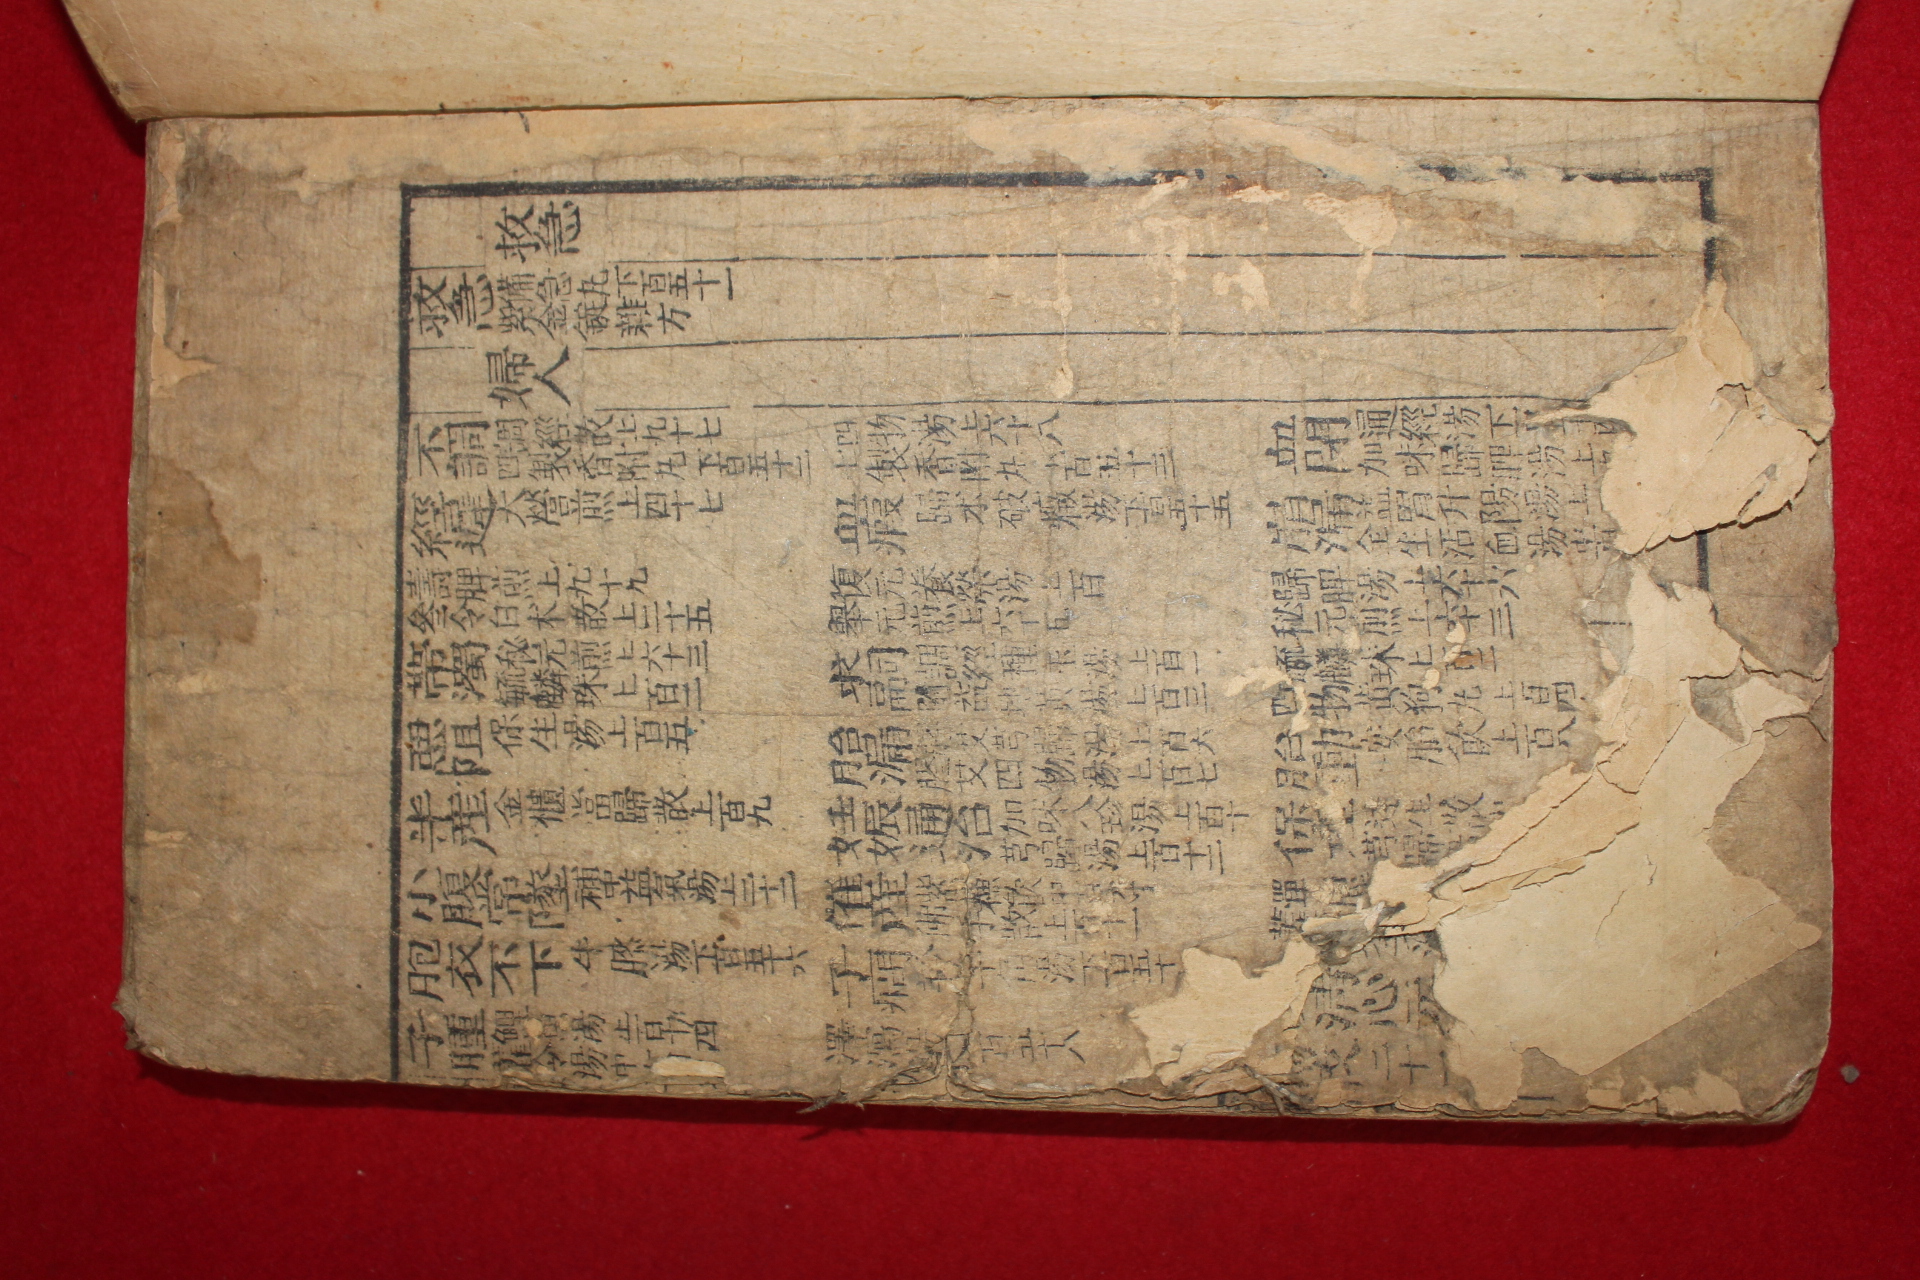 救急
救急 備急丸下百五十一
紫金錠雜方
婦人
不調 調經散上九十七
四製香附丸下百五十二
四物湯上六十八
七製香附丸下百五十三
血閉 通經湯下百五十四
加味歸脾湯上
經遲 大營煎上四十七
血瘕 歸朮破癥湯下百五十五
崩漏 益胃升陽湯上
全生活血湯
壽脾煎上九十九
參令白朮散上三十五
復元養榮湯上百
舉元煎上六十五
歸脾湯上六十六
秘元煎上六十三
帶濁 秘元煎上六十三
毓麟珠上百二
求嗣 調經種玉湯上百一
附益地黃湯上百三
毓麟珠上百二
四物黃狗丸上百四
惡阻 保生湯上百五
胎漏 膠艾芎歸湯上百六
膠艾四物湯上百七
胎動 安胎飮上百八
半産 金櫃當歸散上百九
妊娠通治 加味八珍湯上百十
芎歸湯上百十二
保産 達生散
芎歸
小腹常墜 補中益氣湯上二十二
催産 紫蘇飮中
佛手散上百十一
單
胞衣不下 牛膝湯下百五十六
子癎 湯下百五十
子腫 鯉魚湯上百十四
湯中
澤瀉 下百五十八
淸心元
二十一